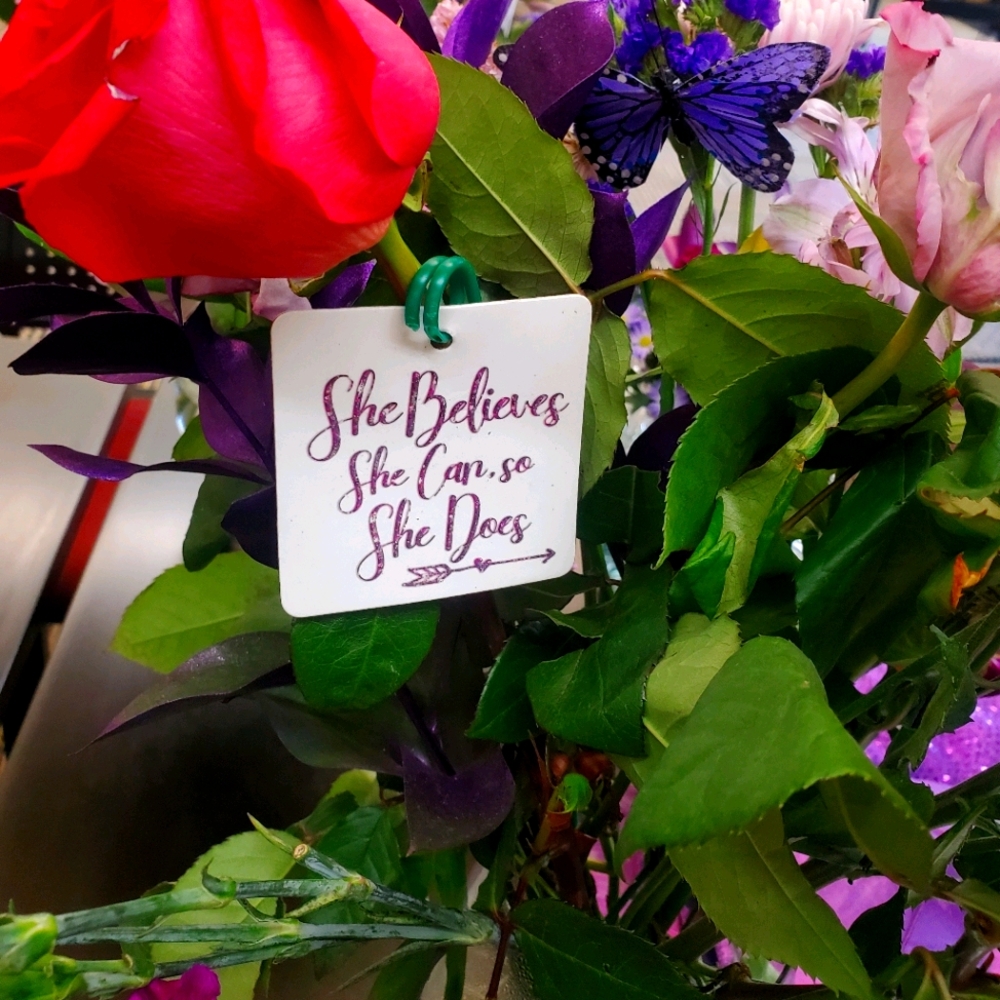 She Believes
She Can, so
She Does